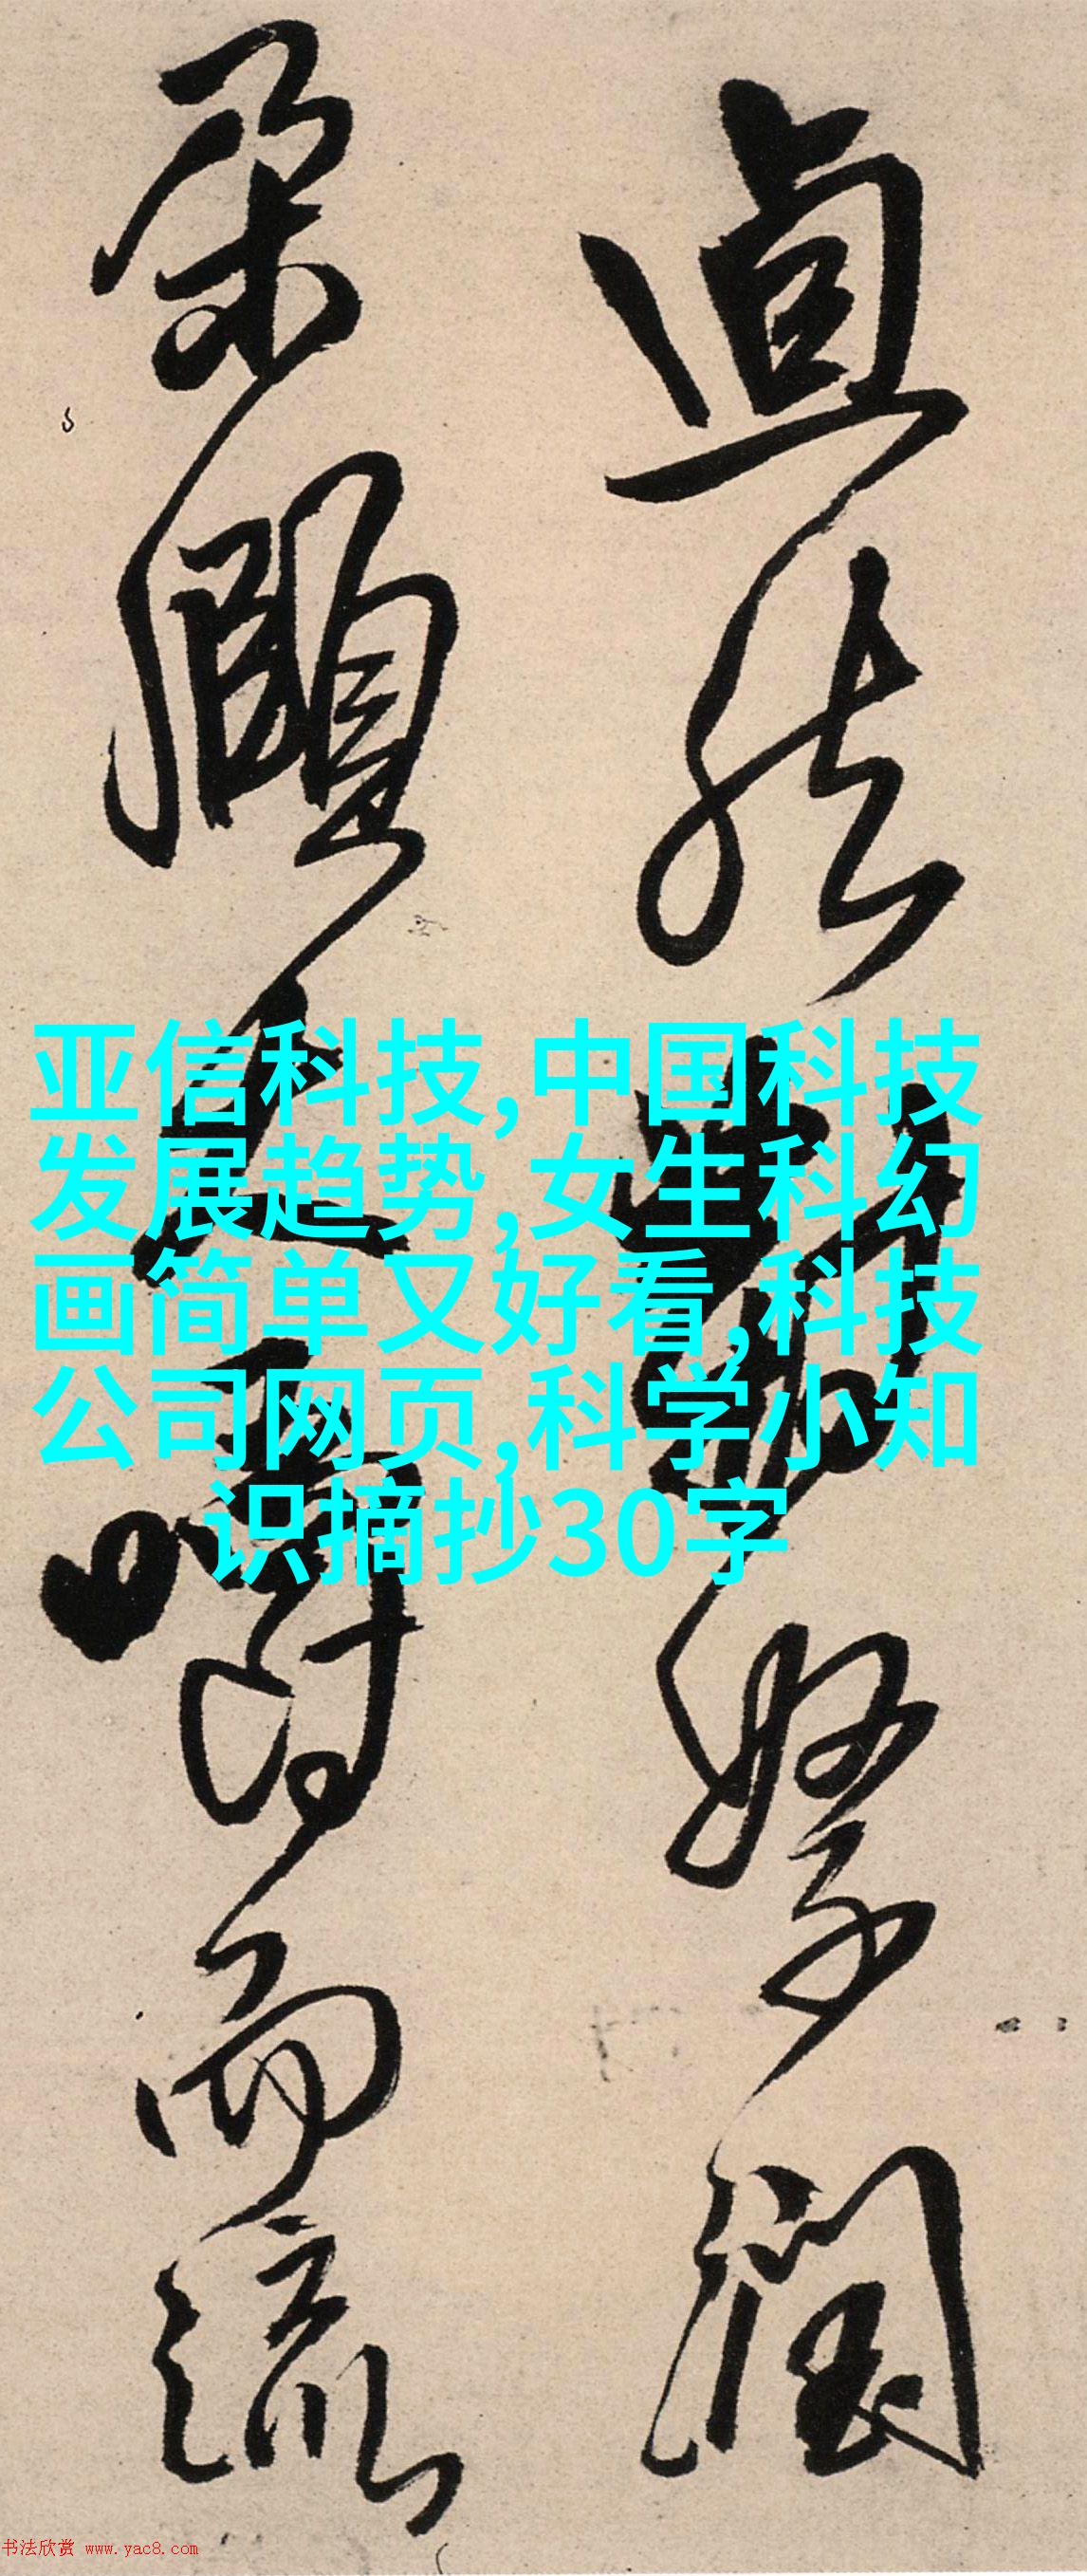 潤
朵頤人嚼而流
亚信科技,中国科技
发展趋势,女生科幻
画简单又好看,科技
公司网页,科学小知
识摘抄30字
书法欣赏 www.yac8.com